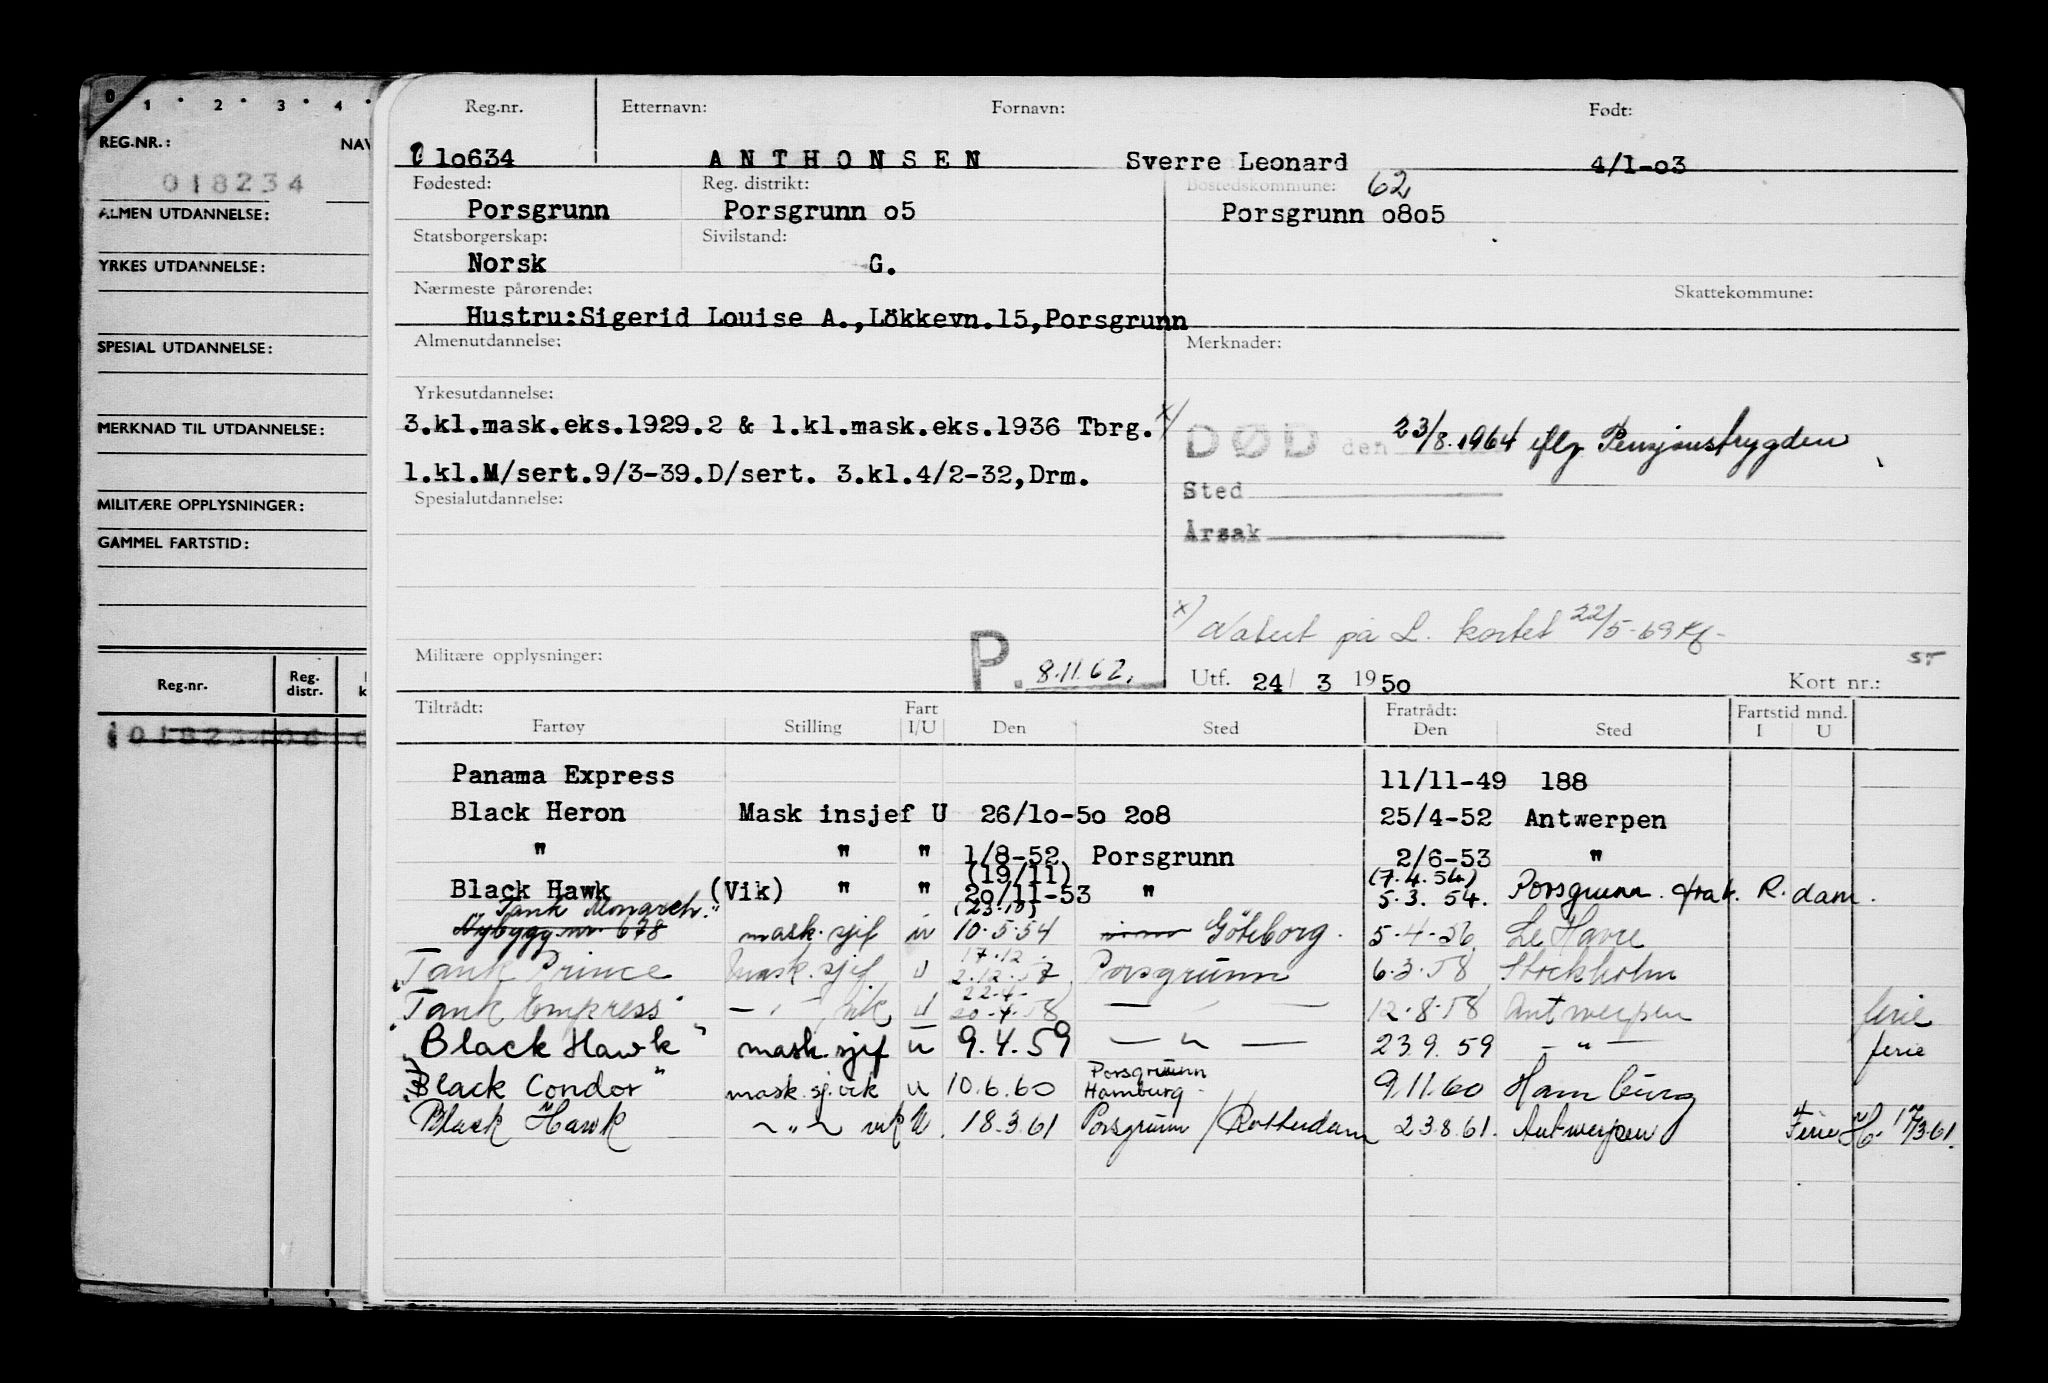 0 1 2 3 4
REG.NR.: NAV
018234
ALMEN UTDANNELSE:
YRKES UTDANNELSE:
SPESIAL UTDANNELSE:
MERKNAD TIL UTDANNELSE:
MILITÆRE OPPLYSNINGER:
GAMMEL FARTSTID:
Reg.nr. Reg. distr. k
Reg.nr. Etternavn: Fornavn: Født:
lo634 ANTHONSEN Sverre Leonard 4/1-o3
Fødested: Reg. distrikt: Bostedskommune: 62
Porsgrunn Porsgrunn o5 Porsgrunn o8o5
Statsborgerskap: Sivilstand:
Norsk G.
Nærmeste pårørende: Skattekommune:
Hustru:Sigerid Louise A.,Lökkevn.15,Porsgrunn
Almenutdannelse: Merknader:
Yrkesutdannelse:
3.kl.mask.eks.1929.2 & 1.kl.mask.eks.1936 Tbrg. x)
DØD den 23/8.1964 iflg Pensjonstrygden
1.kl.M/sert.9/3-39.D/sert. 3.kl.4/2-32,Drm.
Sted
Spesialutdannelse:
Årsak
x) Notert på L. kortet 22/5-69
Militære opplysninger: P. 8.11.62.
Utf. 24/ 3 195o Kort nr.: ST
Tiltrådt: Fart Fratrådt: Fartstid mnd.
Fartøy Stilling I/U Den Sted Den Sted I U
Panama Express 11/11-49 188
Black Heron Mask insjef U 26/lo-5o 2o8 25/4-52 Antwerpen
" " " 1/8-52 Porsgrunn 2/6-53 "
(19/11) (7.4.54)
Black Hawk (Vik) " " 2o/11-53 " 5.3.54. Porsgrunn. frak. R.dam.
"Tank Monarch." (23.10)
Nybygg nr. 678 mask.sjef u 10.5.54 Göteborg. 5-4-56 Le Havre
17.12.
"Tank Prince mask.sjef U 2.12.57 Porsgrunn 6.3.58 Stockholm
22-4-
Tank Empress" — " — vik U 20-4-58 — " — 12.8.58 Antwerpen ferie
"Black Hawk" mask.sjef u 9.4.59 — " — 23.9.59 — " — ferie
Porsgrunn
"Black Condor" mask.sj.vik u 10.6.60 Hamburg 9.11.60 Hamburg
Black Hawk — " — vik U. 18.3.61 Porsgrunn / Rotterdam 23.8.61. Antwerpen Ferie 17/3.61.